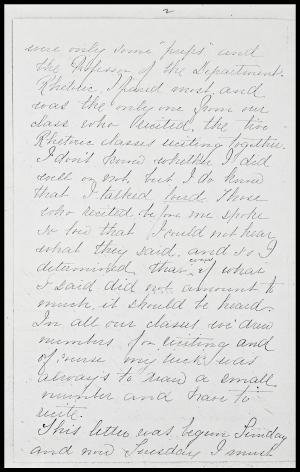 2
were only some "preps" and
the Professor of the Department.
Rhetoric, I passed most and
was the only one from our
class who recited, the two
Rhetoric classes reciting together.
I don't know whether I did
well or not, but I do know
that I talked loud. Those
who recited before me spoke
so low that I could not hear
what they said, and so I
determined that if what
I said did not amount to
much it should be heard.
In all our classes we drew
numbers for reciting and
of course my luck was
always to draw a small
number and have to
recite.
This letter was begun Sunday
and now Tuesday I must